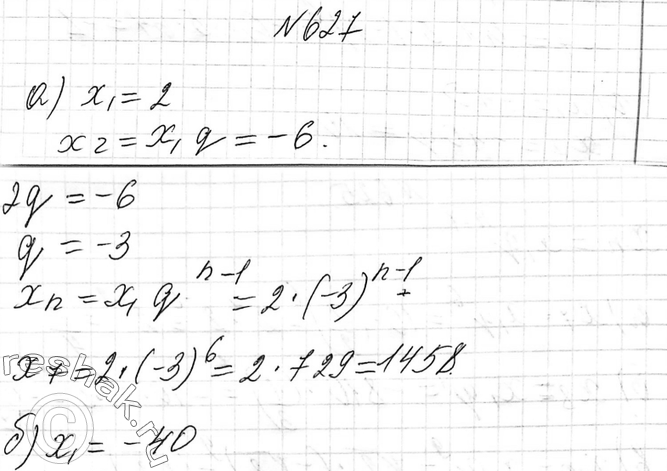 №627
а) x₁ = 2
x₂ = x₁ q = -6.
2q = -6
q = -3
xₙ = x₁ q ⁿ⁻¹ = 2 · (-3)ⁿ⁻¹.
x₇ = 2 · (-3)⁶ = 2 · 729 = 1458.
reshak.ru
©
б) x₁ = -40